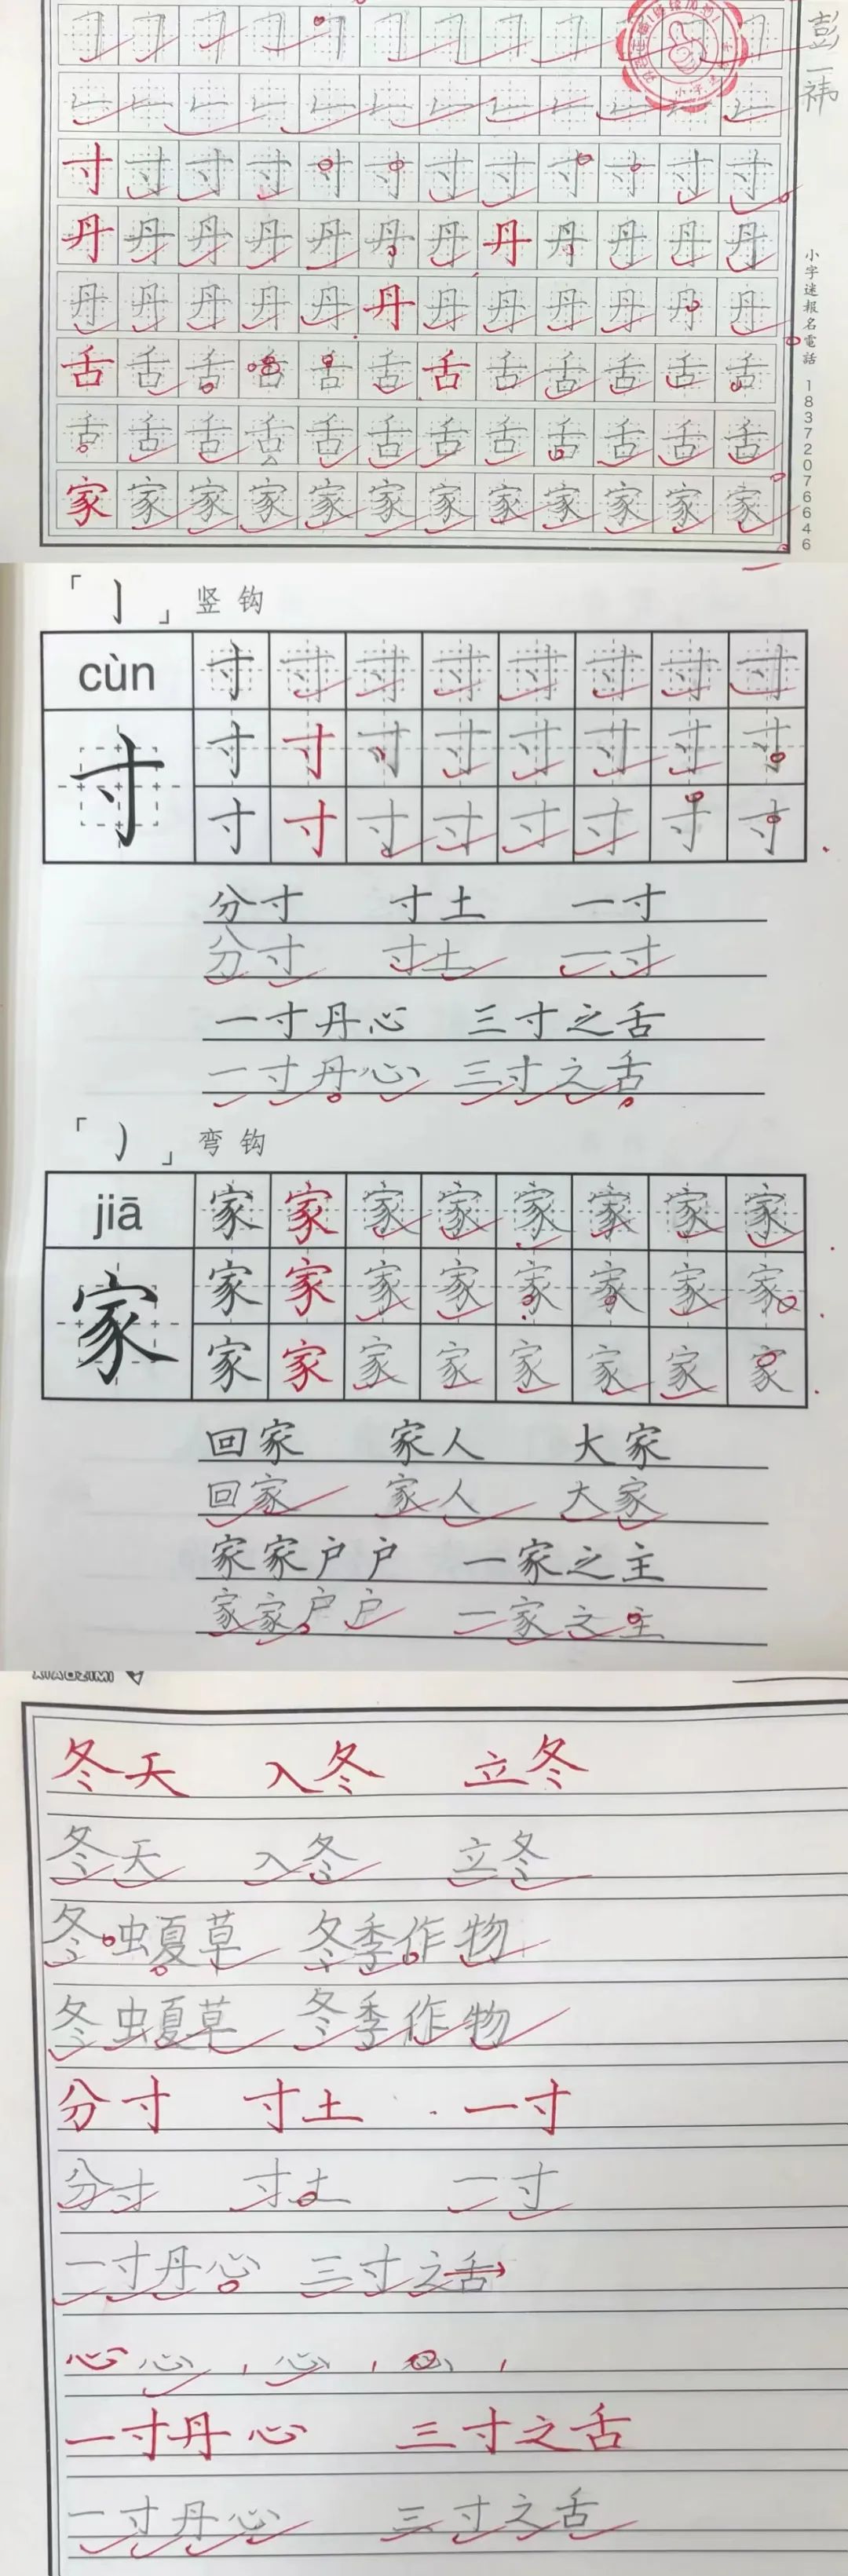 彭一祎
寸寸寸寸寸寸寸寸寸寸寸寸
丹丹丹丹丹丹丹丹丹丹丹丹
丹丹丹丹丹丹丹丹丹丹丹丹
舌舌舌舌舌舌舌舌舌舌舌舌
舌舌舌舌舌舌舌舌舌舌舌舌
家家家家家家家家家家家家
小字迷報名電話 18372076646
「亅」竖钩
cùn 寸寸寸寸寸寸寸寸
寸 寸寸寸寸寸寸寸寸
寸寸寸寸寸寸寸寸
分寸 寸土 一寸
分寸 寸土 一寸
一寸丹心 三寸之舌
一寸丹心 三寸之舌
「㇁」弯钩
jiā 家家家家家家家家
家 家家家家家家家家
家家家家家家家家
回家 家人 大家
回家 家人 大家
家家户户 一家之主
家家户户 一家之主
XIAOZIMI
冬天 入冬 立冬
冬天 入冬 立冬
冬虫夏草 冬季作物
冬虫夏草 冬季作物
分寸 寸土 一寸
分寸 寸土 一寸
一寸丹心 三寸之舌
心心心心
一寸丹心 三寸之舌
一寸丹心 三寸之舌